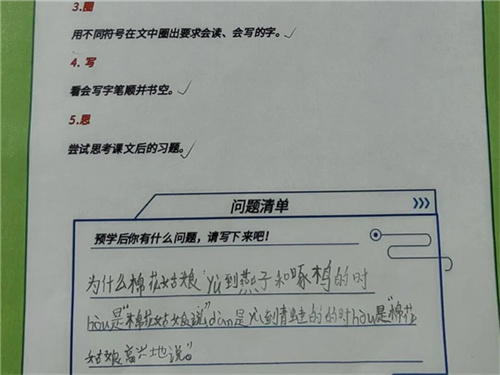 3.圈
用不同符号在文中圈出要求会读、会写的字。
4.写
看会写字笔顺并书空。
5.思
尝试思考课文后的习题。
问题清单
预学后你有什么问题，请写下来吧！
为什么棉花姑娘yù到燕子和啄木鸟的时
hòu是“棉花姑娘说”dàn是yù到青蛙的的时hòu是“棉花
姑娘高兴地说。”